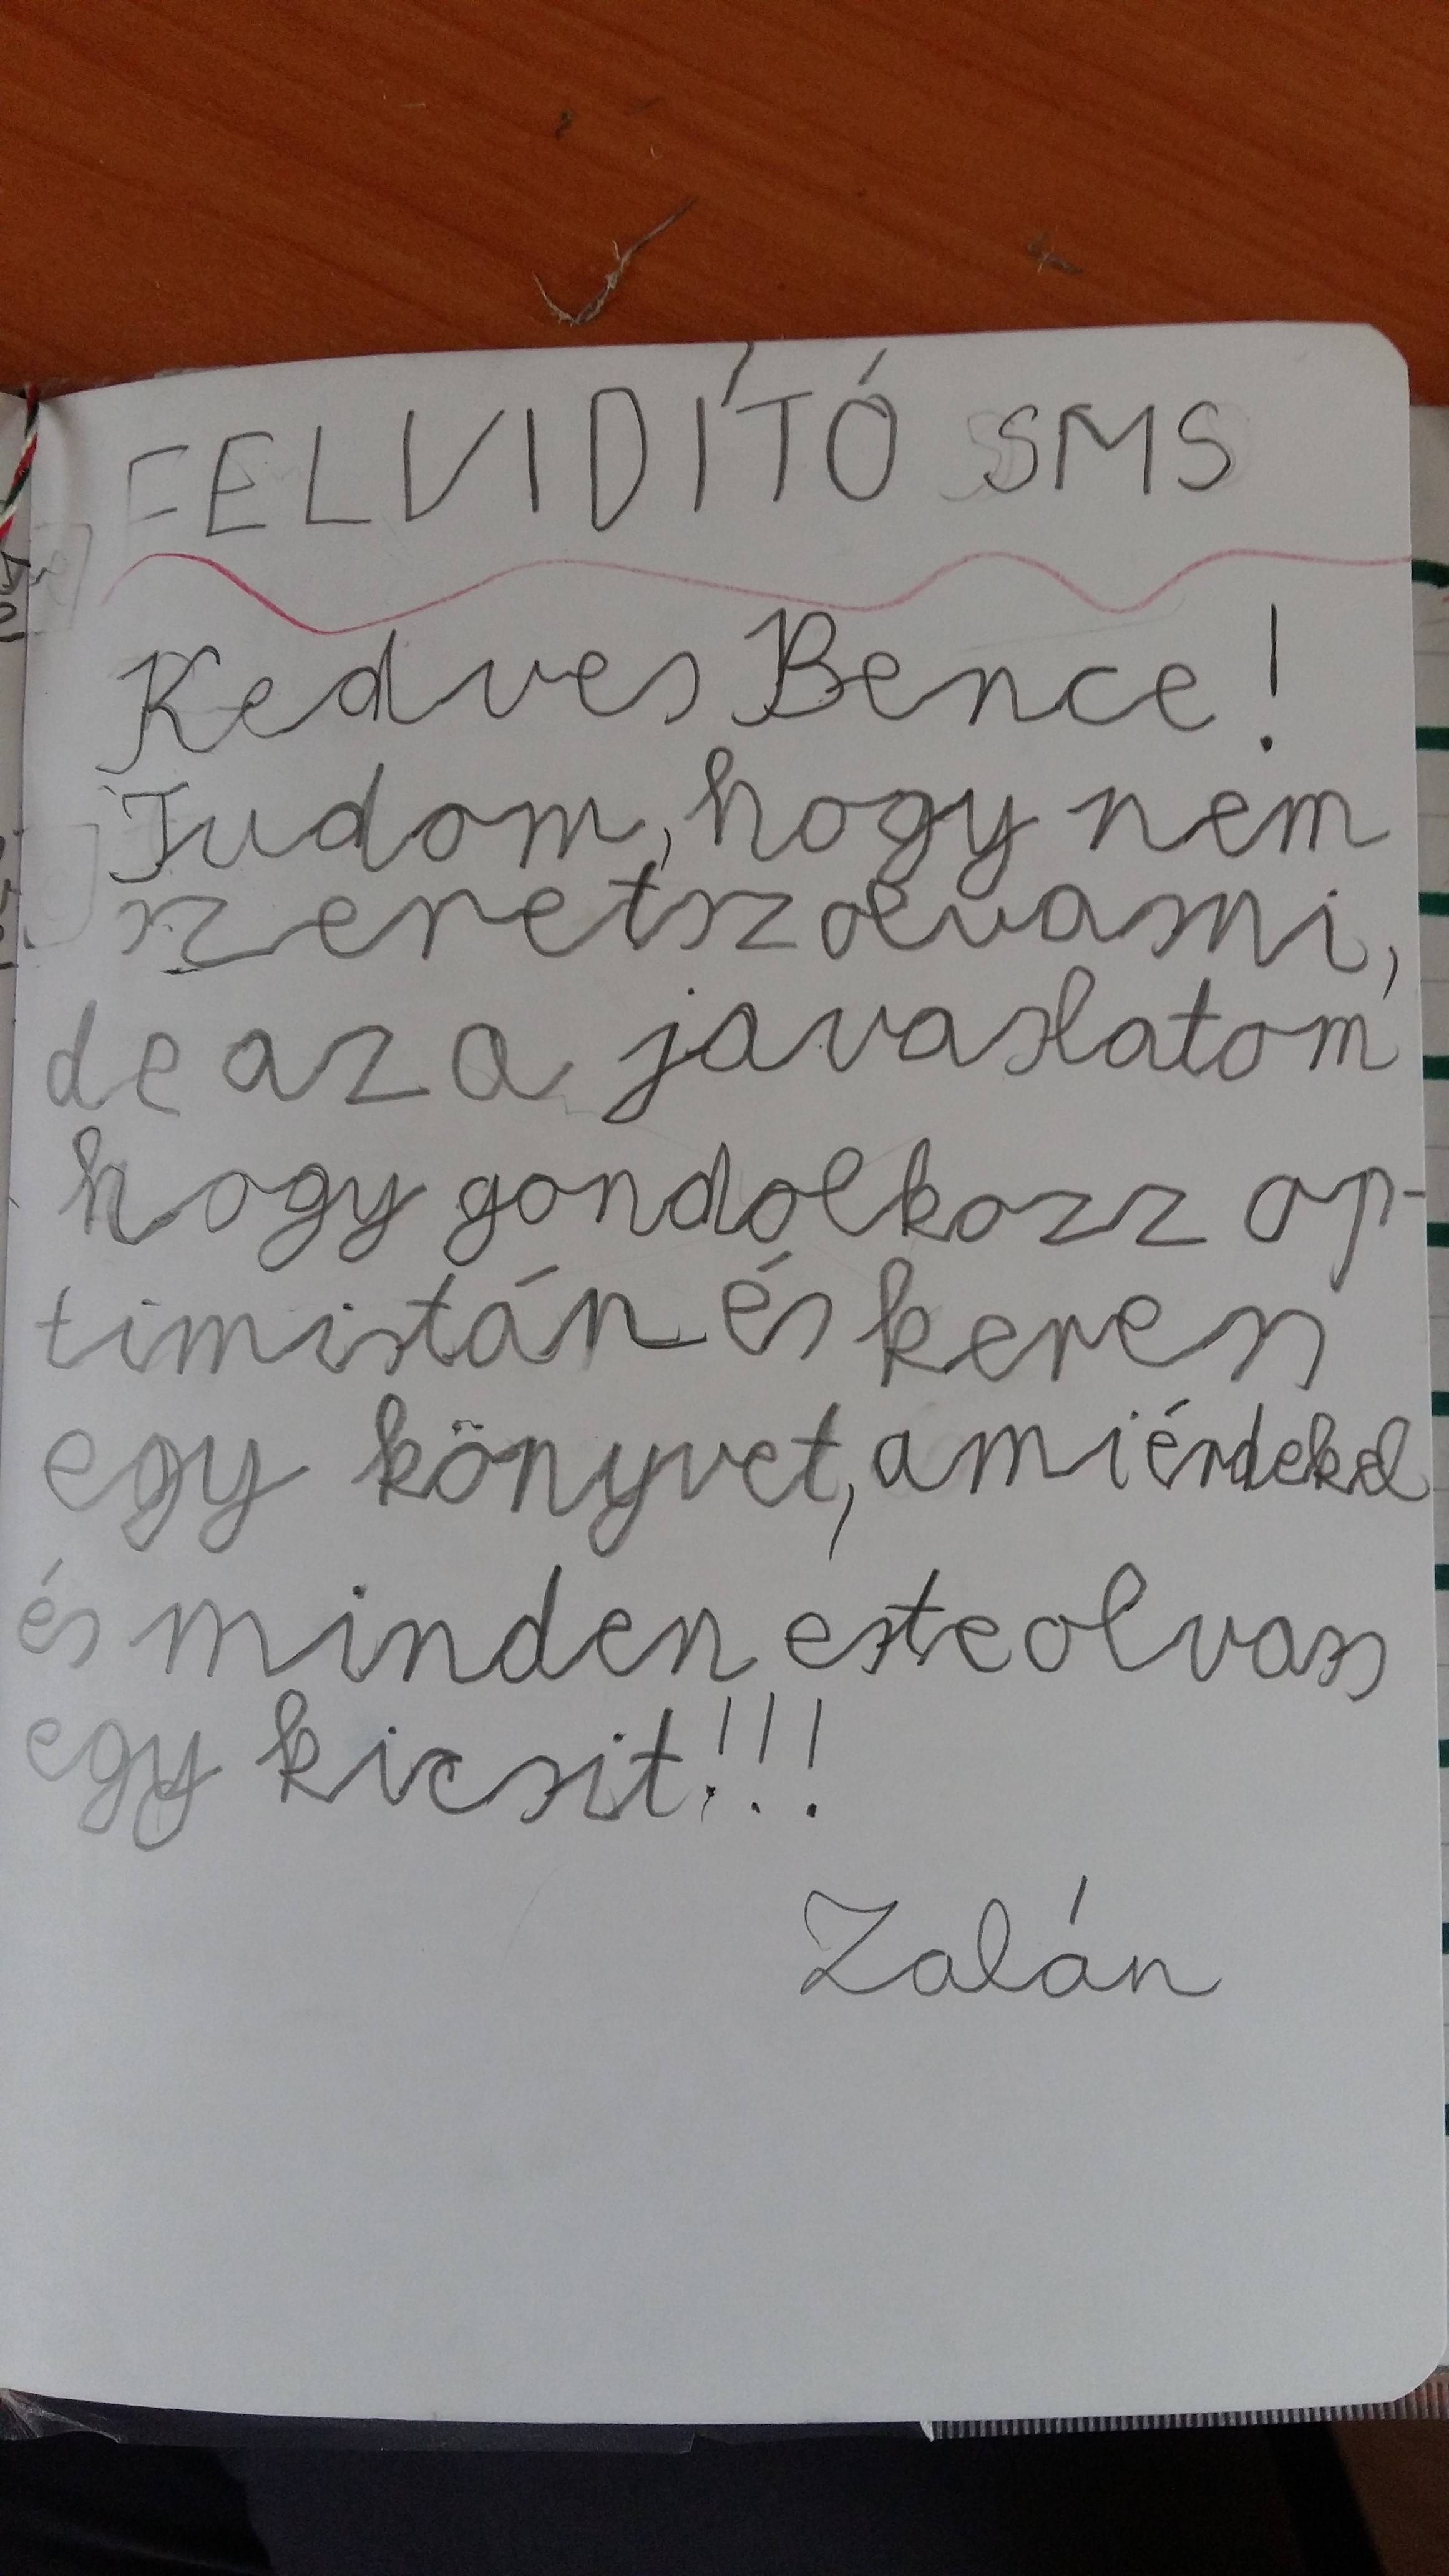 FELVIDÍTÓ SMS
Kedves Bence!
Tudom, hogy nem
szeretsz olvasni,
de az a javaslatom
hogy gondolkozz op-
timistán és keres
egy könyvet, ami érdekel
és minden este olvass
egy kicsit!!!
Zalán